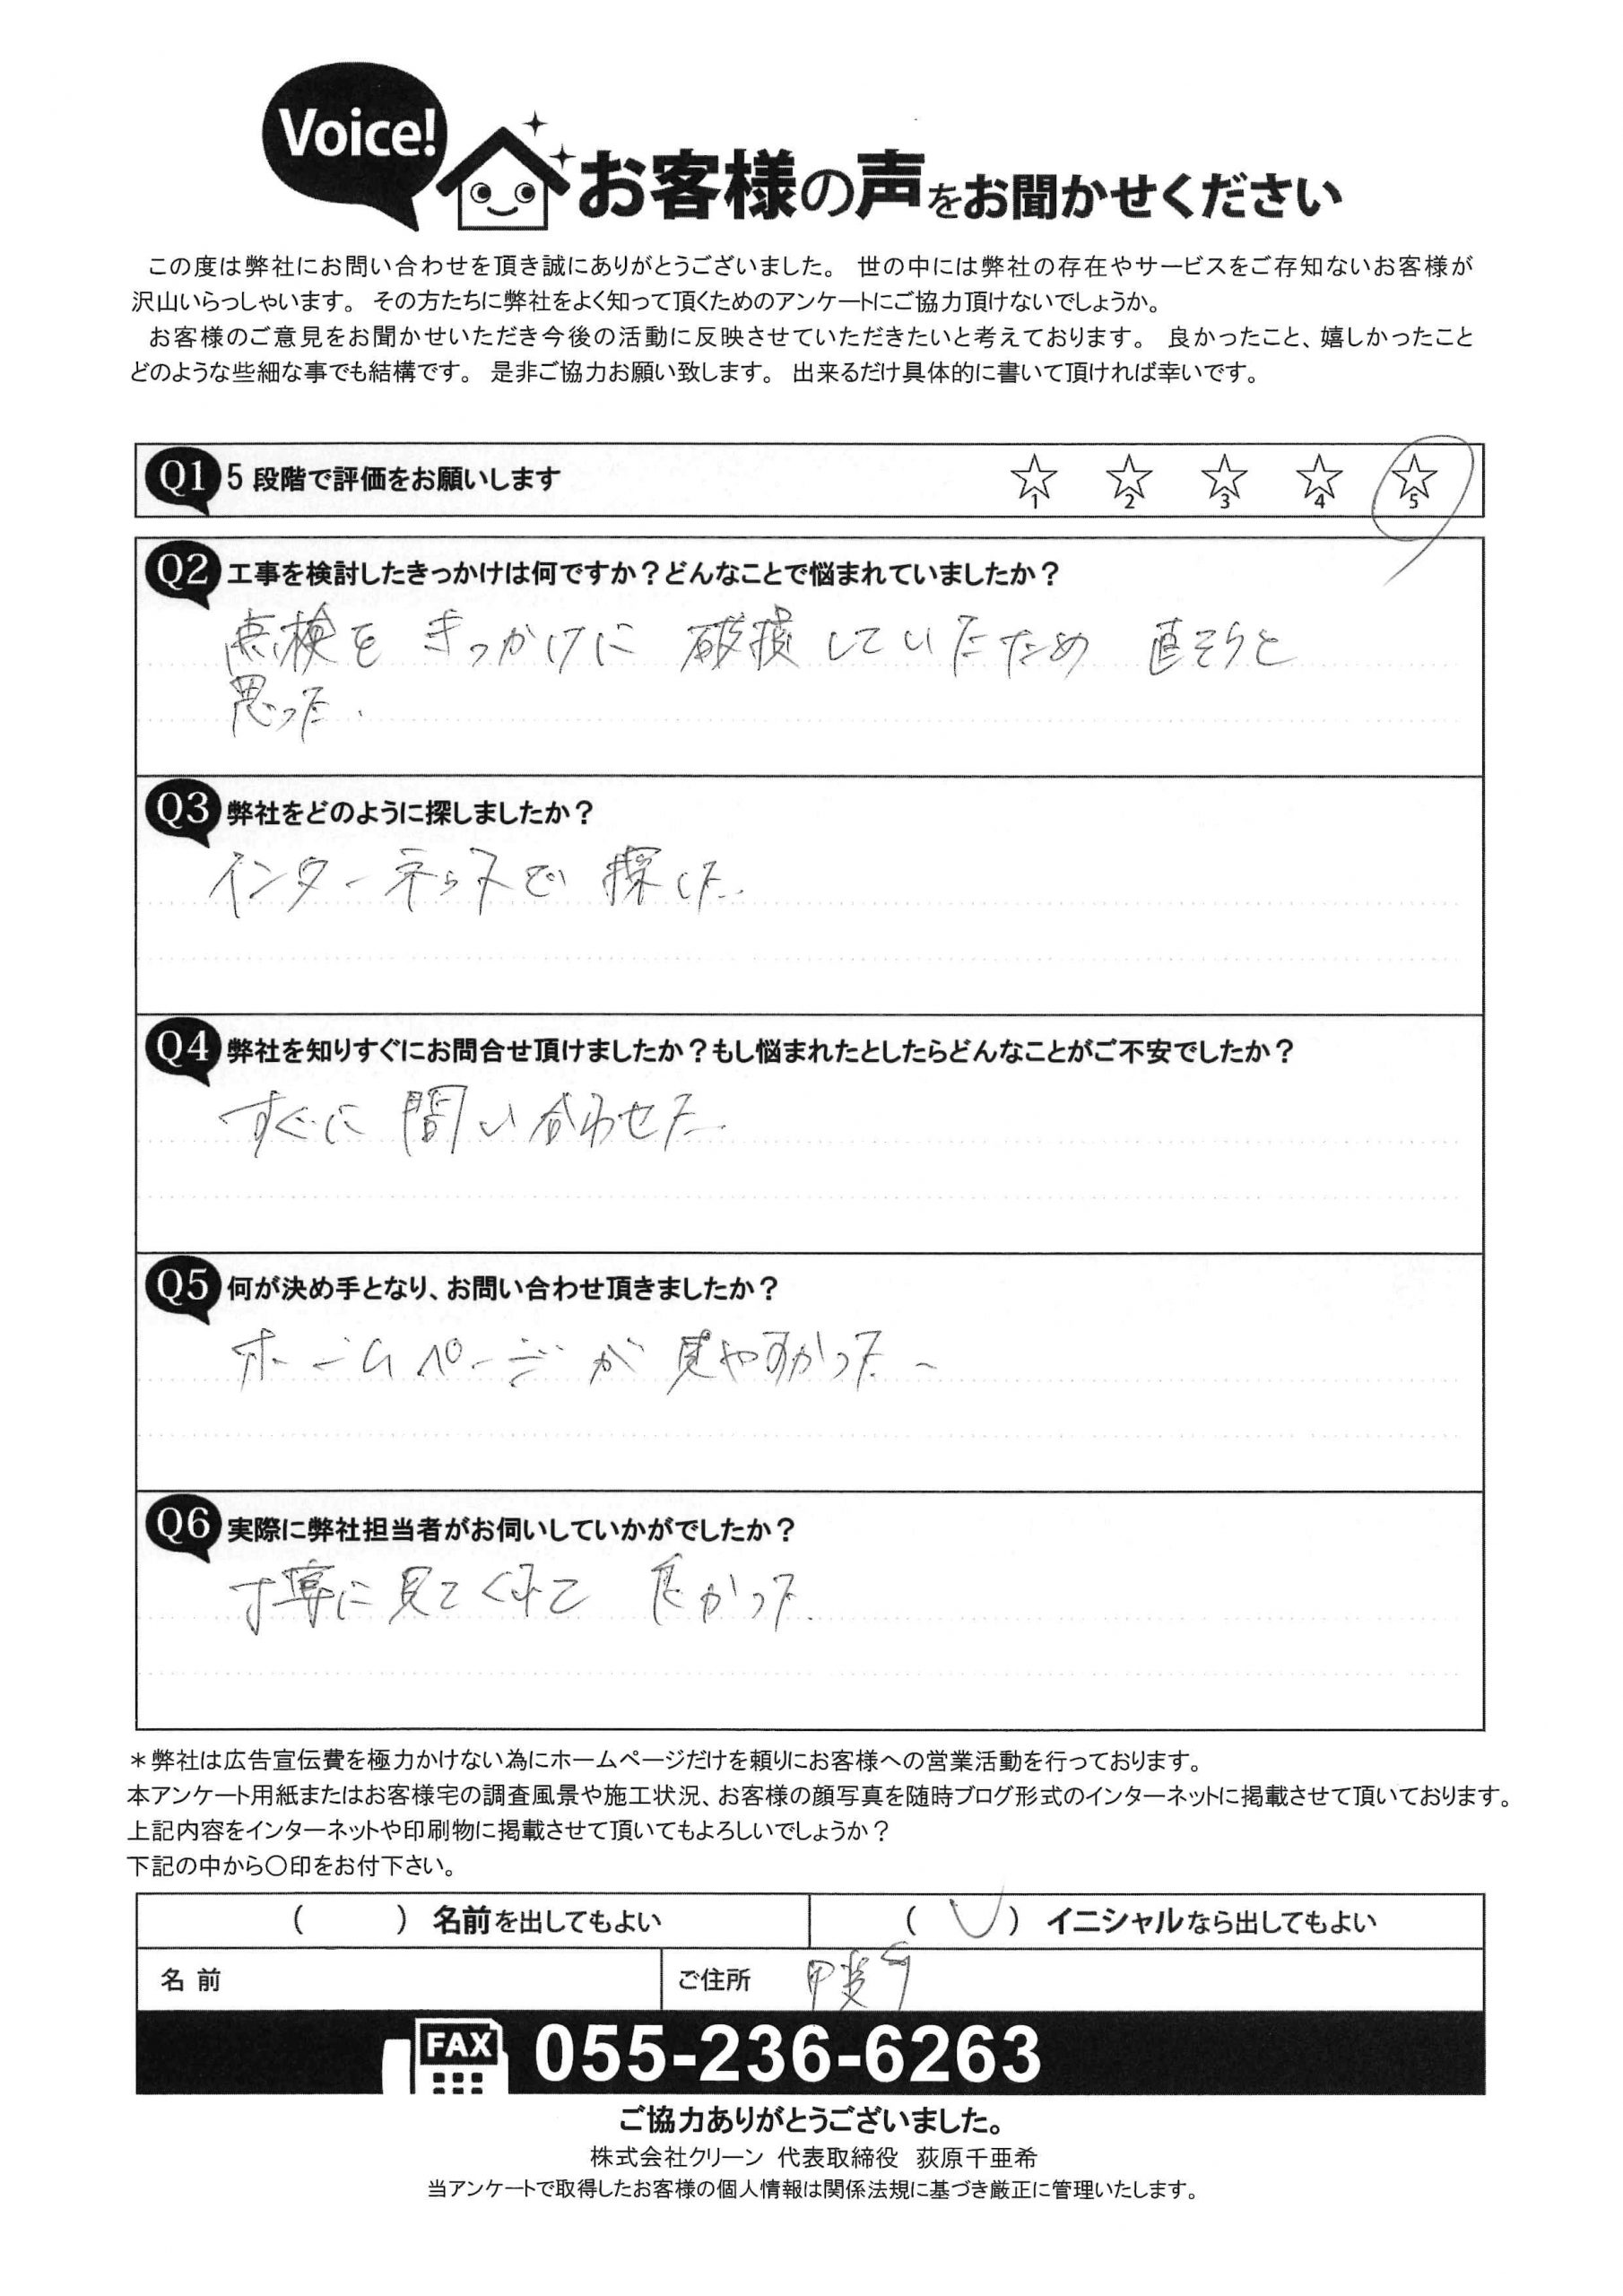 Voice!
お客様の声をお聞かせください
この度は弊社にお問い合わせを頂き誠にありがとうございました。 世の中には弊社の存在やサービスをご存知ないお客様が
沢山いらっしゃいます。 その方たちに弊社をよく知って頂くためのアンケートにご協力頂けないでしょうか。
お客様のご意見をお聞かせいただき今後の活動に反映させていただきたいと考えております。 良かったこと、嬉しかったこと
どのような些細な事でも結構です。 是非ご協力お願い致します。 出来るだけ具体的に書いて頂ければ幸いです。
Q1 5 段階で評価をお願いします ☆1 ☆2 ☆3 ☆4 ☆5
Q2 工事を検討したきっかけは何ですか？どんなことで悩まれていましたか？
点検を きっかけに 破損していたため 直そうと
思った.
Q3 弊社をどのように探しましたか？
インターネットで 探した.
Q4 弊社を知りすぐにお問合せ頂けましたか？もし悩まれたとしたらどんなことがご不安でしたか？
すぐに 問い合わせた
Q5 何が決め手となり、お問い合わせ頂きましたか？
ホームページが 見やすかった
Q6 実際に弊社担当者がお伺いしていかがでしたか？
丁寧に見てくれて 良かった.
＊弊社は広告宣伝費を極力かけない為にホームページだけを頼りにお客様への営業活動を行っております。
本アンケート用紙またはお客様宅の調査風景や施工状況、お客様の顔写真を随時ブログ形式のインターネットに掲載させて頂いております。
上記内容をインターネットや印刷物に掲載させて頂いてもよろしいでしょうか？
下記の中から〇印をお付下さい。
( ) 名前を出してもよい ( ) イニシャルなら出してもよい
名 前 ご住所 甲斐
FAX 055-236-6263
ご協力ありがとうございました。
株式会社クリーン 代表取締役 荻原千亜希
当アンケートで取得したお客様の個人情報は関係法規に基づき厳正に管理いたします。